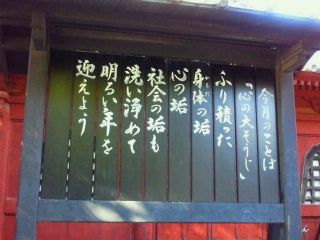 今月のことば
「心の大そうじ」
ふり積った
身体の垢
心の垢
社会の垢も
洗い浄めて
明るい年を
迎えよう